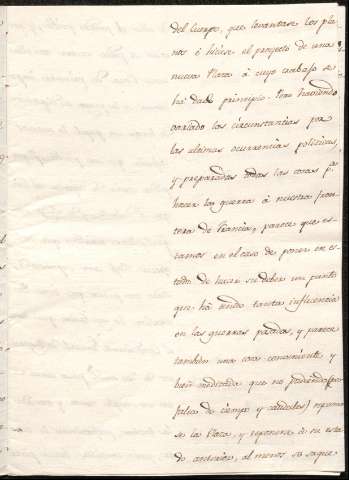 del cuerpo, que levantase los pla-
nos é hiciese el proyecto de una
nueva Plaza á cuyo trabajo se
ha dado principio. Pero haviendo
variado las circunstancias por
las ultimas ocurrencias politicas,
y preparadas todas las cosas pa
hacer la guerra á nuestra fron-
tera de Francia, parece que es-
tamos en el caso de poner en es-
tado de hacer su deber un punto
que ha tenido tanta influencia
en las guerras pasadas, y parece
tambien una cosa conveniente y
bien meditada que no pudiendo (por
falta de tiempo y caudales)
se la Plaza, y reponerla á su esta-
do anterior, al menos se saque